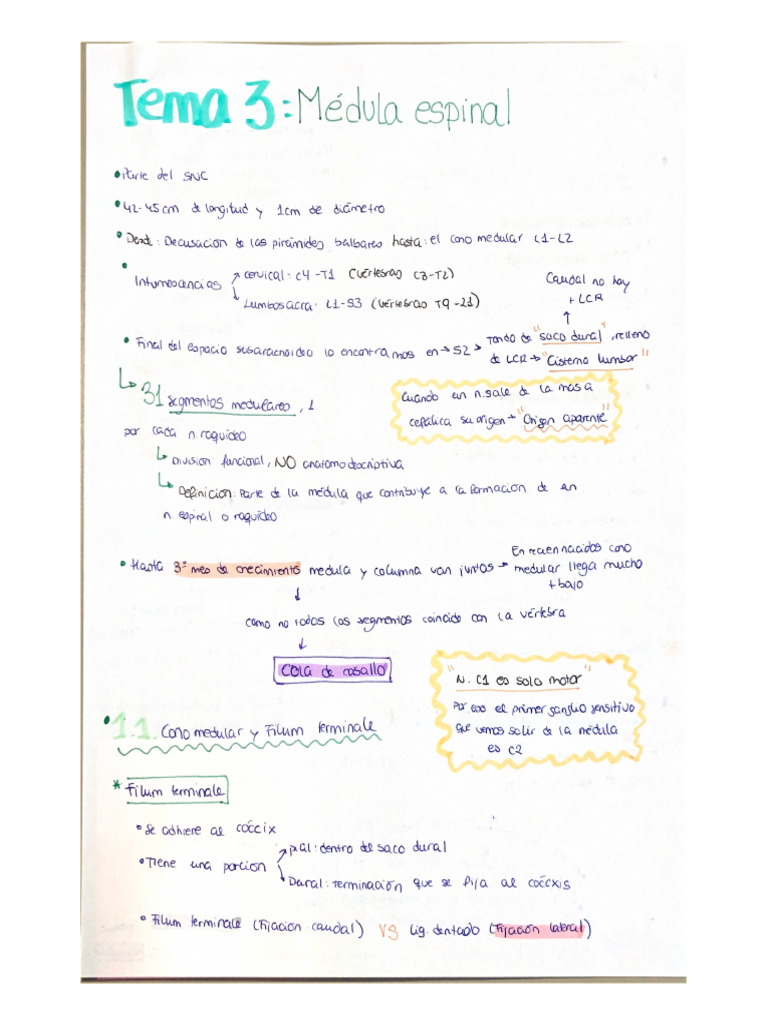 Tema 3: Médula espinal
• Parte del SNC
• 42-45cm de longitud y 1cm de diámetro
• Desde: Decusación de las pirámides balbares hasta: el cono medular L1-L2
• Intumescencias
cervical: C4-T1 (vértebras C3-T2)
Lumbosacra: L1-S3 (vértebras T9-L1)
Caudal no hay
+ LCR
• Final del espacio subaracnoideo lo encontramos en → S2 → Fondo de "saco dural", relleno
de LCR → "Cisterna lumbar"
↳ 31 segmentos medulares, 1
por cada n. raquídeo
↳ División funcional, NO anatomodescriptiva
↳ Definición: Parte de la médula que contribuye a la formación de un
n. espinal o raquídeo
Cuando un n. sale de la masa
cefálica su origen → "Origen aparente"
• Hasta 3er mes de crecimiento medula y columna van juntos → En recien nacidos cono
medular llega mucho
+ bajo
↓
como no todos los segmentos coincide con la vértebra
↓
Cola de caballo
"N. C1 es solo motor"
Por eso el primer ganglio sensitivo
que vemos salir de la médula
es C2
• 1.1. Cono medular y Filum terminale
* Filum terminale
• Se adhiere al cóccix
• Tiene una porcion
pial: dentro del saco dural
Dural: terminación que se fija al coccxis
• Filum terminale (Fijación caudal) VS Lig. dentado (Fijación lateral)